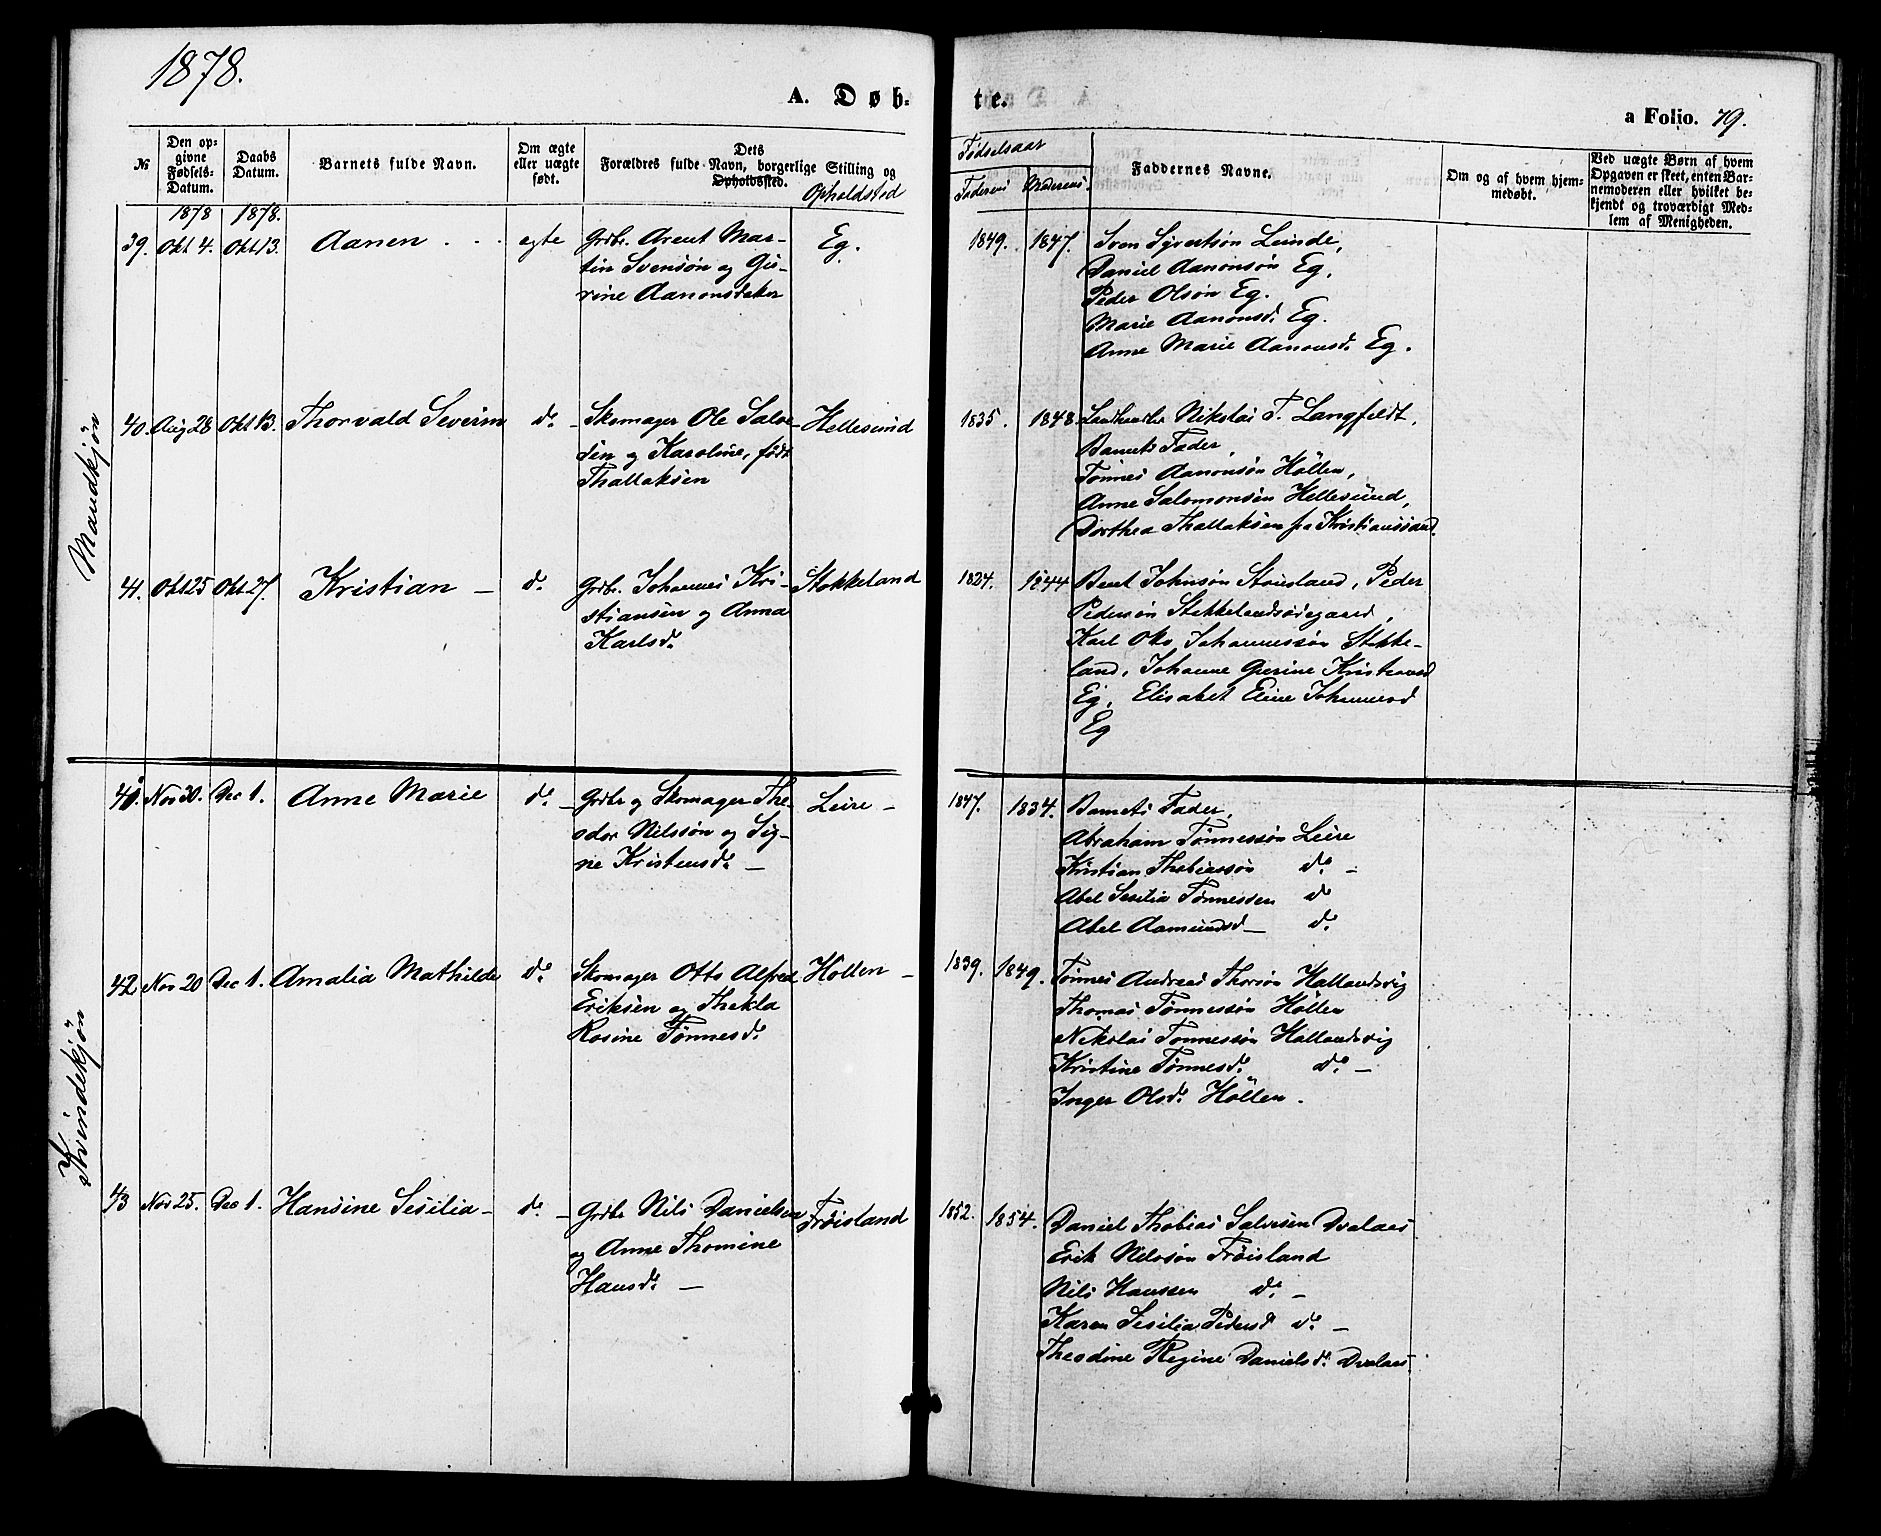 1878.
A. Døb-
te.
a Folio. 79.
№
Den op-
givne
Fødsels-
Datum.
Daabs
Datum.
Barnets fulde Navn.
Om ægte
eller uægte
født.
Dets
Forældres fulde Navn, borgerlige Stilling og
Opholdssted.
Opholdsted
Fødselsaar
Faderens
Moderens.
Faddernes Navne.
Om og af hvem hjem-
medøbt.
Ved uægte Børn af hvem
Opgaven er skeet, enten Bar-
nemoderen eller hvilket be-
kjendt og troværdigt Med-
lem af Menigheden.
1878 1878.
Mandkjön
39. Okt 4. Okt 13. Aanen . . . egte
Grdbr. Arent Mar-
tin Svensøn og Gu-
rine Aanonsdatter
Eg.
1849. 1847.
Sven Syvertsøn Lunde,
Daniel Aanonsøn Eg,
Peder Olsøn Eg.
Marie Aanonsd. Eg.
Anne Marie Aanonsd. Eg.
40. Aug 28 Okt 13. Thorvald Severin do.
Skomager Ole Salve-
sen og Karoline, født
Thallaksen
Hellesund
1835. 1848.
Landhandler Nikolai T. Langfeldt,
Barnets Fader,
Tønnes Aanonsøn Höllen,
Anne Salomonsen Hellesund,
Dorthea Thallaksen fra Kristianssand.
41. Okt 25 Okt 27. Kristian – do.
Grdbr. Johannes Kri-
stiansen og Anna
Karlsd.
Stokkeland
1824. 1844
Bent Johnsøn Stousland, Peder
Pedersøn Stokkelandsødegaard,
Karl Johannessøn Stokke-
land, Johanne Gurine Kristiansd
Eg, Elisabet Johannesd
Eg
Kvindekjön
41. Nov 30. Dec 1. Anne Marie do. –
Grdbr og Skomager The-
odor Nilssøn og Sig-
ne Kristensd. –
Leire –
1847. 1834.
Barnets Fader,
Abraham Tønnessøn Leire
Kristian Thobiassøn do. –
Abel Sesilia Tønnessen do
Abel Aamundsd – do.
42. Nov 20 Dec 1. Amalia Mathilde do.
Skomager Otto Alfred
Eriksen og Thekla
Rosine Tønnesd.
Höllen –
1839. 1849.
Tønnes Andreas Thorsøn Hallandsvig
Thomas Tønnessøn Höllen
Nikolai Tønnessøn Hallandsvig
Kristine Tønnesd. do. –
Inger Olsd. Höllen .
43 Nov 25. Dec 1. Hansine Sesilia – do. –
Grdbr Nils Danielsen
og Anne Thomine
Hansd. –
Frøisland
1852. 1854.
Daniel Thobias Salvesen Dvalaas
Erik Nilssøn Frøisland
Nils Hanssen do. –
Karen Sesilia Pedersd do. –
Theodine Regine Danielsd. Dvalaas.